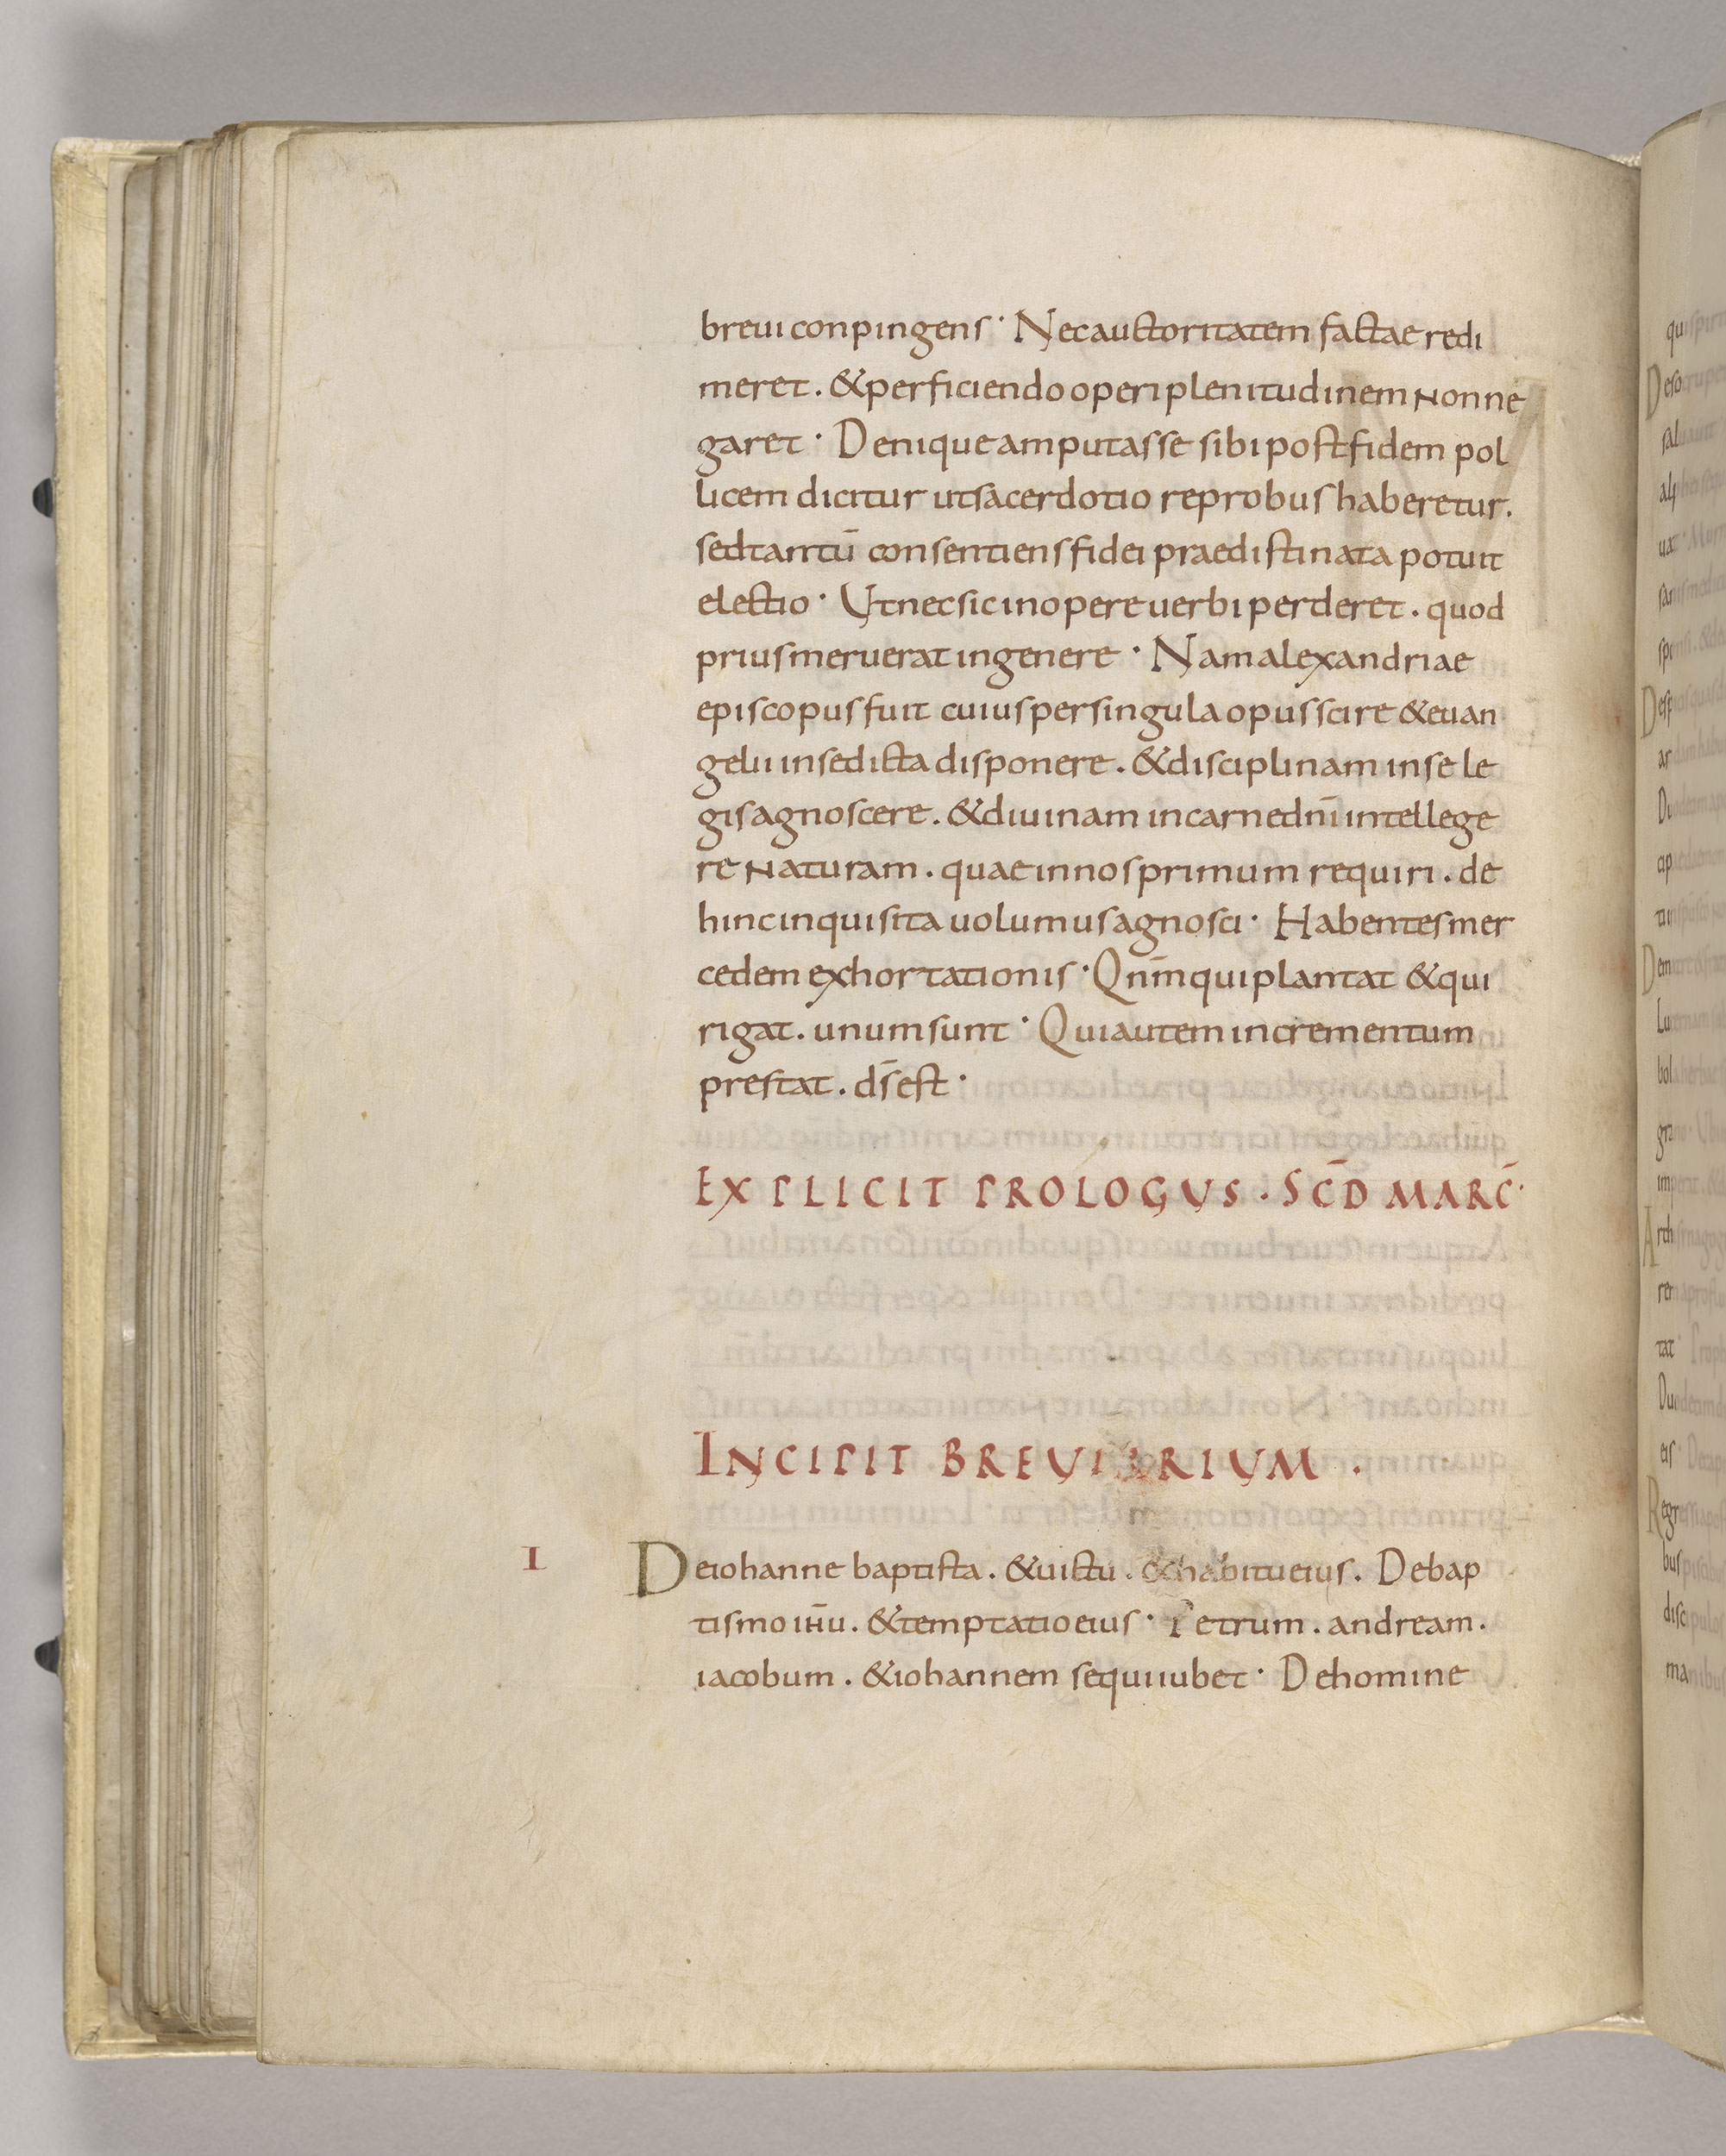 breui conpingens· Nec auctoritatem factae redi
meret. & perficiendo operi plenitudinem non ne
garet· Denique amputasse sibi post fidem pol
licem dicitur ut sacerdotio reprobus haberetur.
sed tantū consentiens fidei praedistinata potuit
electio· Ut nec sic in opere uerbi perderet. quod
prius meruerat in genere· Nam alexandriae
episcopus fuit cuius per singula opus scire & euan
gelii in se dicta disponere. & disciplinam in se le
gis agnoscere. & diuinam in carne dnī intellege
re naturam. quae in nos primum requiri. de
hinc inquisita uolumus agnosci· Habentes mer
cedem exhortationis· Qnīm qui plantat & qui
rigat. unum sunt· Qui autem incrementum
prestat. ds̄ est·
EXPLICIT PROLOGUS· SCD̄ MARC̄·
INCIPIT BREUIARIUM.
I De iohanne baptista. & uictu. & habitu eius. De bap
tismo ihū. & temptatio eius· Petrum. andream.
iacobum. & iohannem sequi iubet· De homine